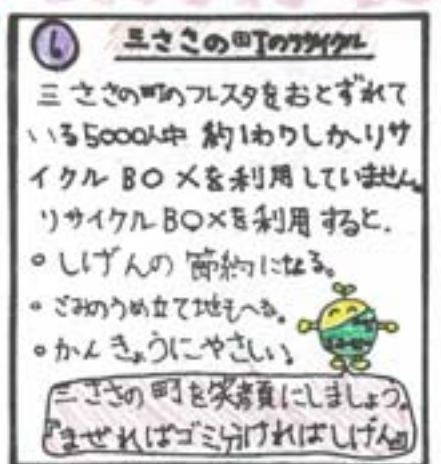 6 三ささの町のリサイクル
三ささの町のフレスタをおとずれて
いる5000人中 約1わりしかリサ
イクル BOXを利用していません。
リサイクルBOXを利用すると、
。しげんの 節約になる。
。ごみのうめ立て地もへる。
。かんきょうにやさしい。
三ささの町を笑顔にしましょう。
『まぜればゴミ分ければしげん』